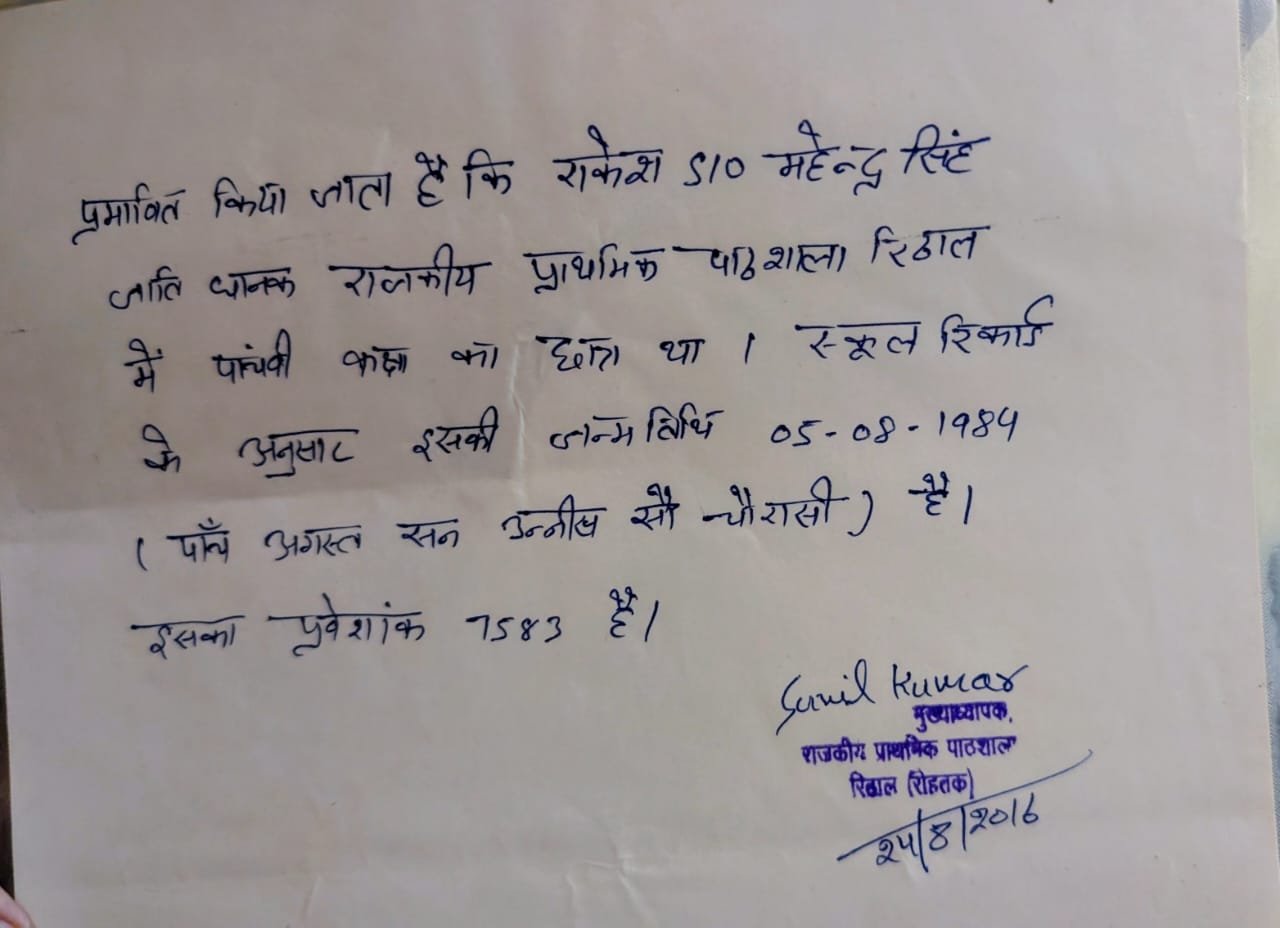 प्रमावित किया जाता है कि राकेश S/O महेन्द्र सिंह
जाति धानक राजकीय प्राथमिक पाठशाला रिठाल
में पांचवी कक्षा का छात्र था । स्कूल रिकार्ड
के अनुसार इसकी जन्म तिथि 05-08-1984
( पाँच अगस्त सन उन्नीस सौ चौरासी ) है।
इसका प्रवेशांक 7583 है।
Sunil Kumar
मुख्याध्यापक,
राजकीय प्राथमिक पाठशाला
रिठाल (रोहतक)
24/8/2016